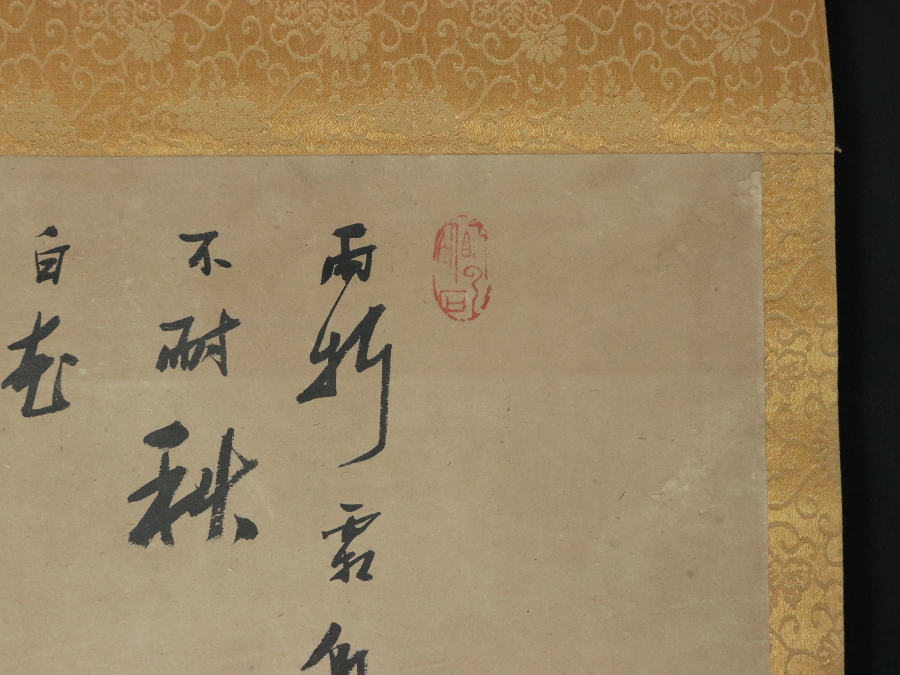 雨折霜
不耐秋
白花